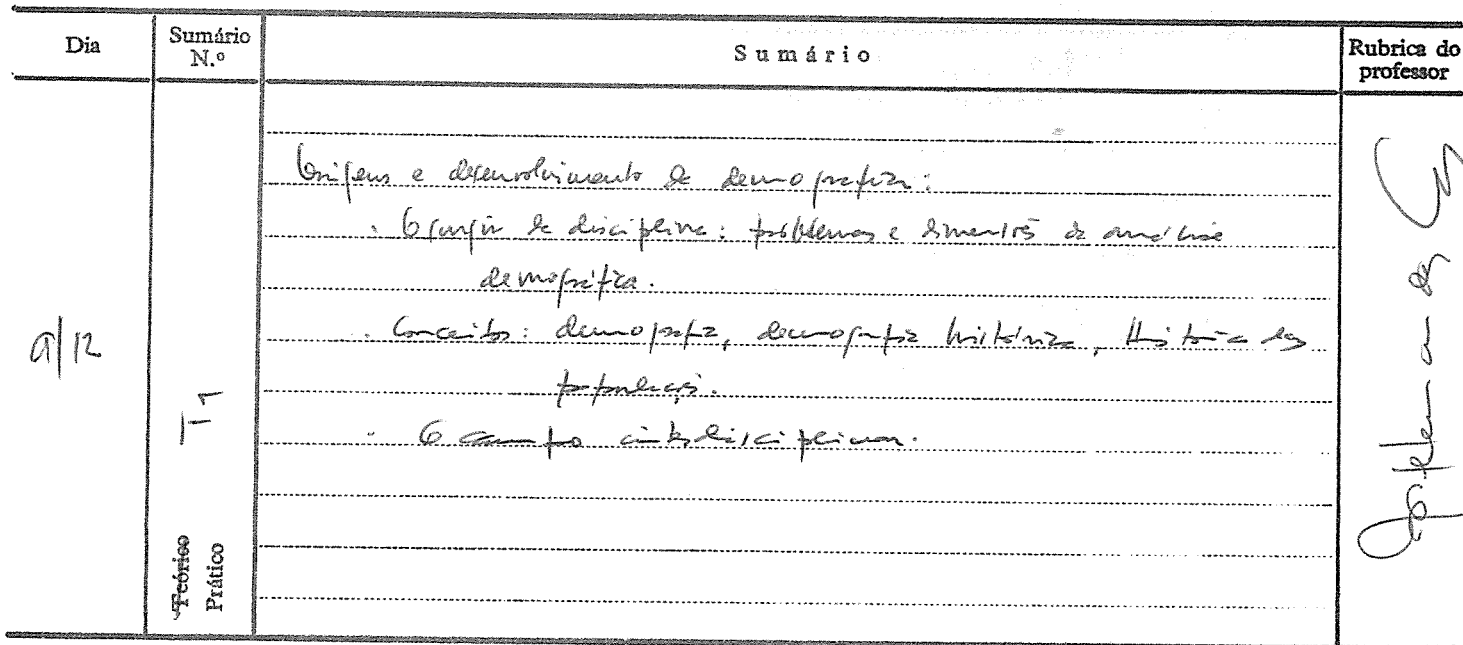 Dia
Sumário N.º
Sumário
Rubrica do professor
Origens e desenvolvimento da demografia:
. O surgir da disciplina: problemas e dimensões da análise
demográfica.
9/12
. Conceitos: demografia, demografia histórica, História das
populações.
T1
. O campo interdisciplinar.
Teórico
Prático